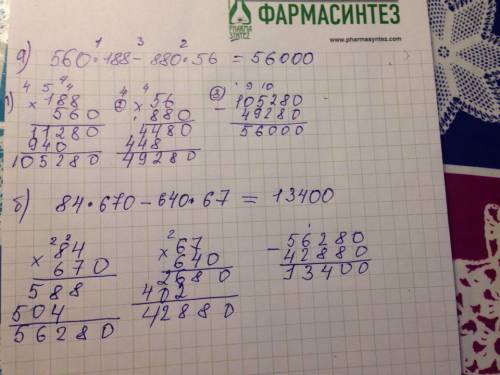 PHARMA SYNTEZ
ФАРМАСИНТЕЗ
www.pharmasyntez.com
а) 560·188 - 880·56 = 56000
1 3 2
1) 4 5 4 4
×188
560
11280
940
105280
2) 4 4
×56
880
4480
448
49280
3) 9 10
-105280
49280
56000
б) 84·670 - 640·67 = 13400
2 2
×84
670
588
504
56280
2
×67
640
2680
402
42880
-56280
42880
13400